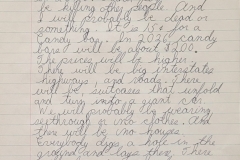 be killing other people. And
I will probably be dead or
something. It is 15¢ for a
Candy bar, In 2020 candy
bars will be about $200.
The prices will be higher.
There will be big interstates
highways, and roads. There
will be suitcases that unfold
and turn into a giant car.
We will probably by wearing
seethrough or into clothes. And
there will be no houses.
Everybody digs a hole in the
ground and lays there. There